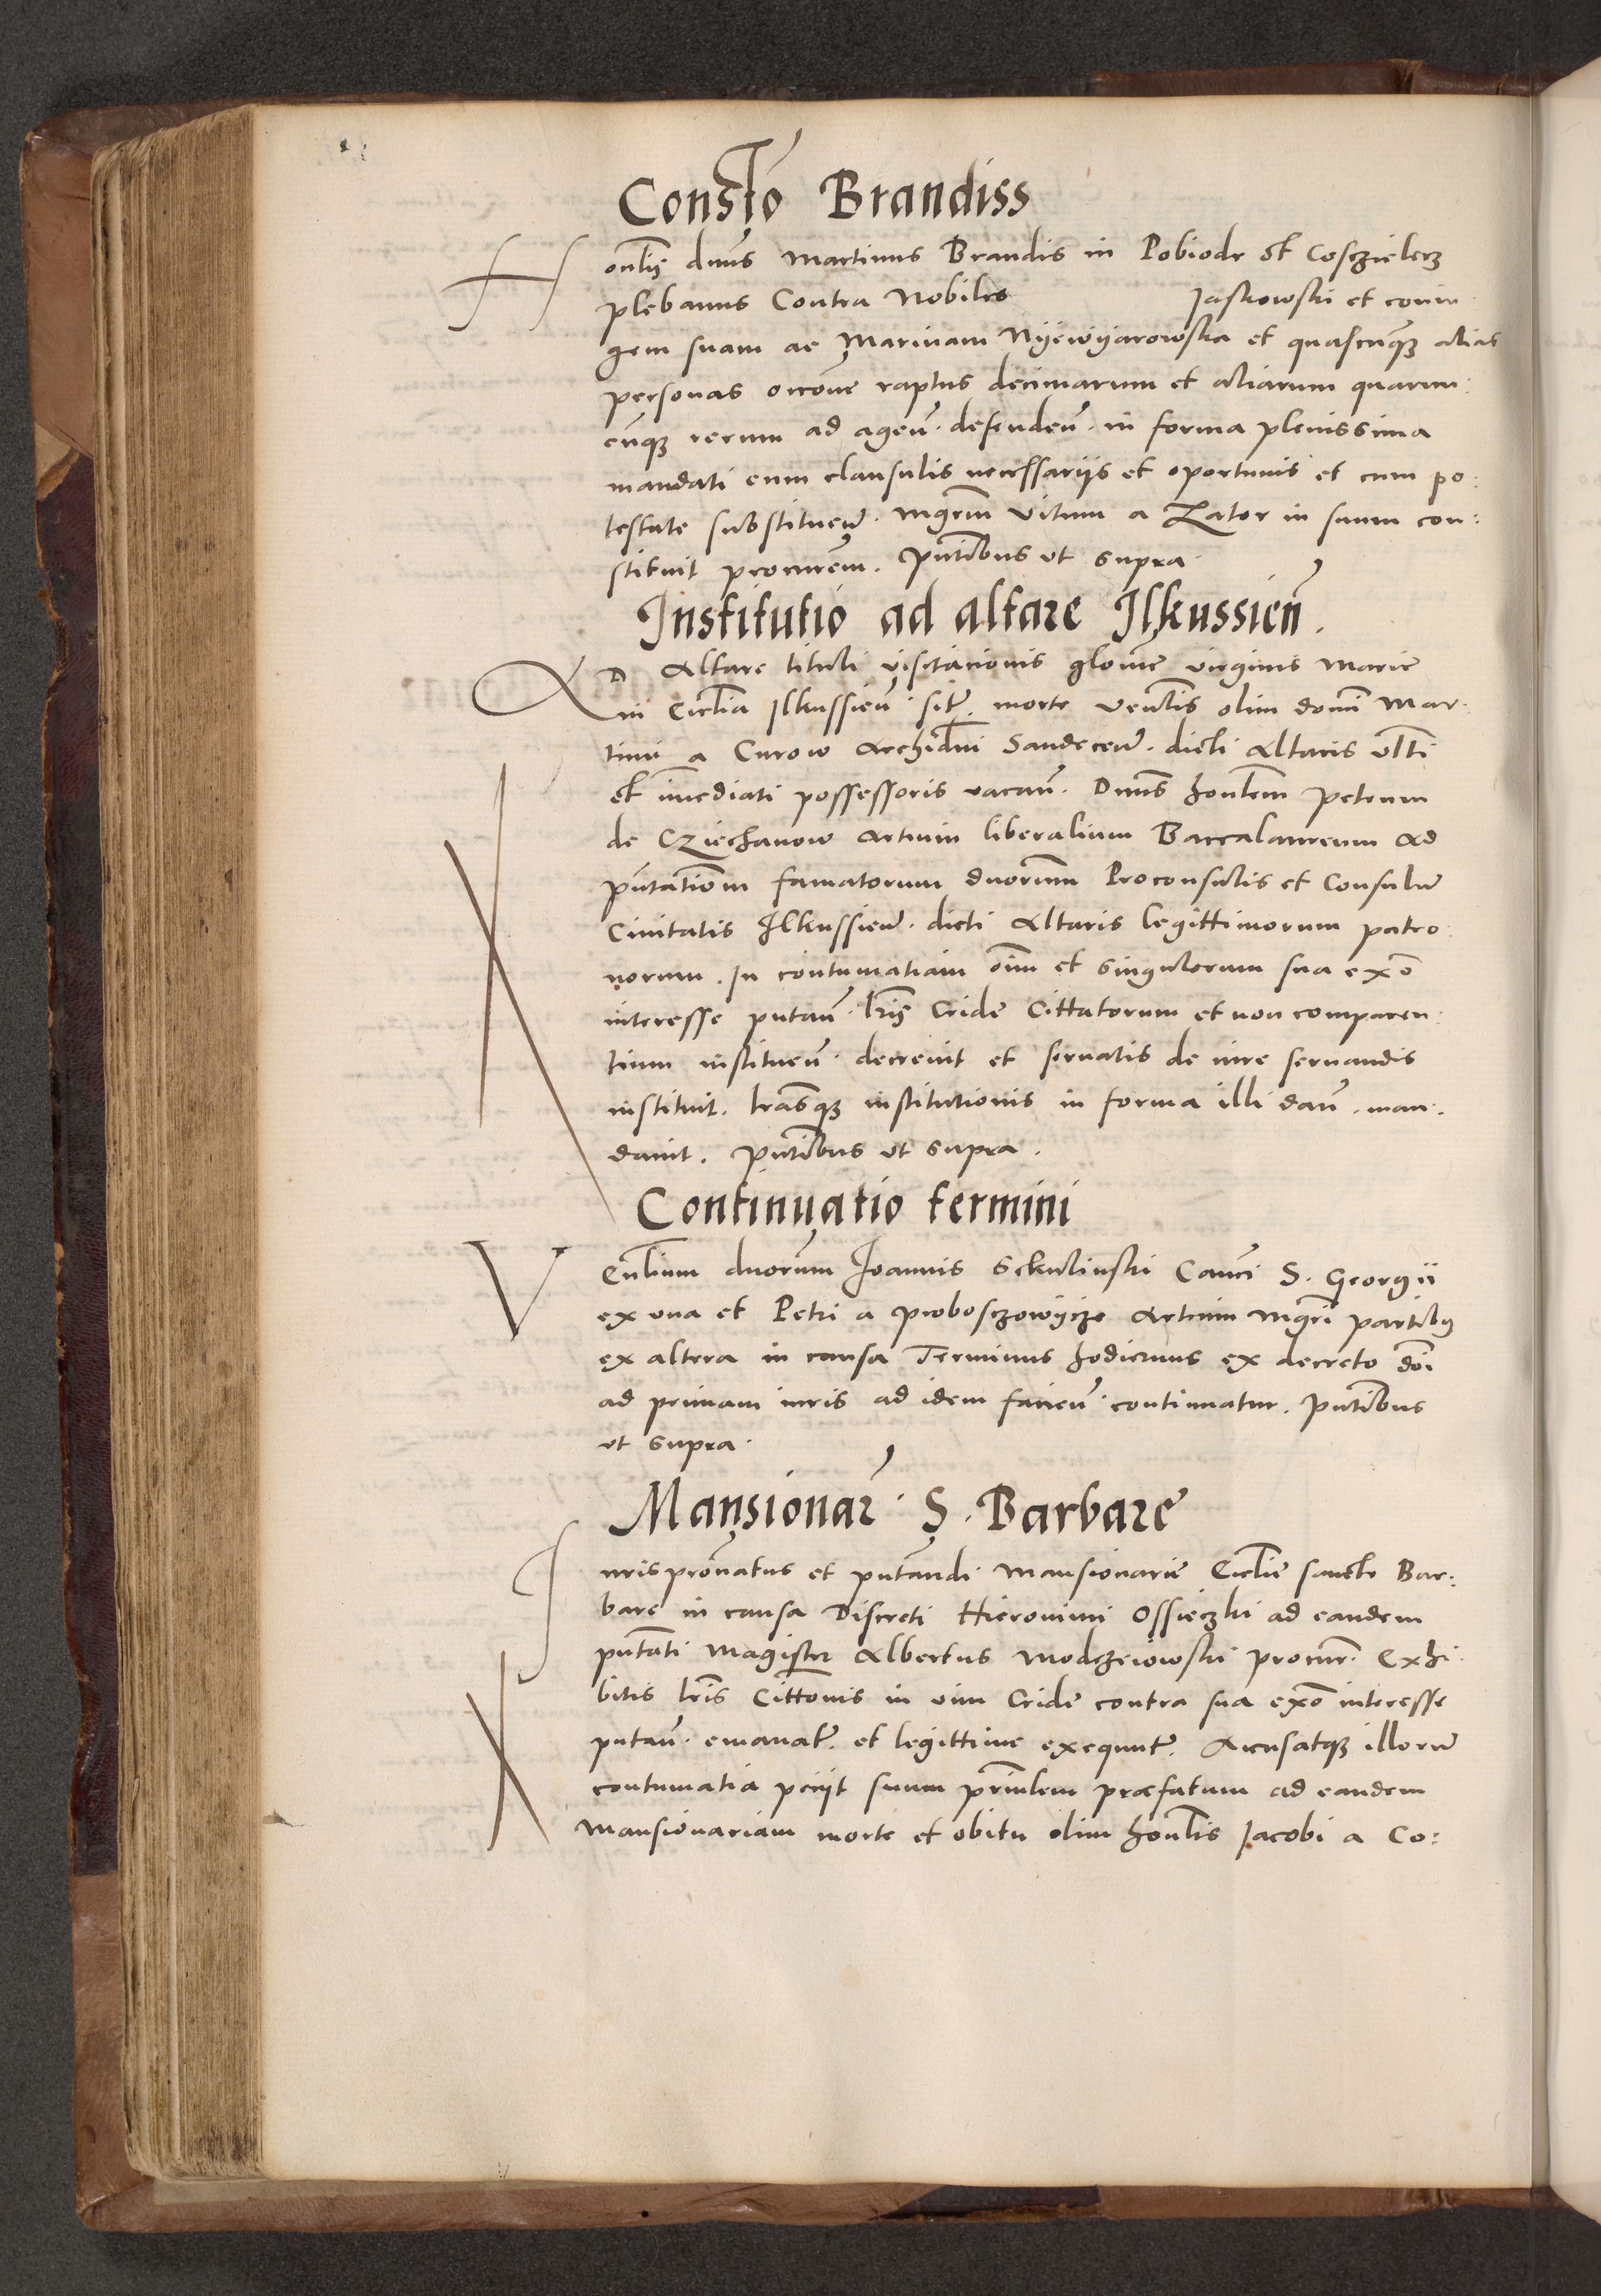 Constō Brandiss
Honlis̄ dnus̄ Martinus Brandis in Pobiodr et Cosczielecz
plebanus Contra Nobiles Jaskowski et coniu
gem suam ac Marinam Nyewyarowska et quascunq̄ alias
personas occōne raptus decimarum et aliarum quarum:
cunq̄ rerum ad agen̄. defenden̄. in forma plenissima
mandati cum clausulis necessariis et oportunis et cum po:
testate substituen̄. Mgrm̄ Vitum a Zator in suum con:
stituit procurēm. Pn̄tibus ut supra.
Institutio ad altare Ilkussien̄.
AD Altare tituli visitacionis glōise virginis Marie
in Ecclīa Ilkussien̄. sit̄. morte Venlis̄ olim domī Mar
tini a Curow Archidnī Sandecen̄. dicti Altaris ultī
et imēdiati possessoris vacan̄. Dnus̄ honlem̄ Petrum
de Cziechanow Artium liberalium Baccalaureum Ad
pn̄tationem famatorum dnorum̄ Proconsulis et Consulum̄
Civitatis Ilkussien̄. dicti Altaris legittimorum patro
norum. In contumatiam oīm et singulorum sua ex̄o
interesse putan̄. lrīs Cride Cittatorum et non comparen:
tium instituen̄. decrevit et servatis de iure servandis
instituit. lrāsq̄ institutionis in forma illi dan̄. man:
davit. Pn̄tibus ut supra.
Continuatio termini
VEnlium̄ dnorum̄ Joannis Sekulinski Canci̅ S. Georgii
ex una et Petri a Proboszowycze Artium Mgrī partibus
ex altera in causa Terminus hodiernus ex decreto doī
ad primam iuris ad idem facien̄. continuatur. Pn̄tibus
ut supra.
Mansionar̄. S. Barbare
Iuris pronātus et pn̄tandi Mansionarie Ecclīe sancte Bar:
bare in causa Discreti Hieronimi Ossieczki ad eandem
pn̄tati Magister Albertus Modrzewowski procur̄. Exhi
bitis lrīs Cittōnis in vim Cride contra sua ex̄o interesse
putan̄. emanat̄. et legittime exequut̄. Acusatq̄ illorum̄
contumatia petiit suum prin̄lem prefatum ad eandem
Mansionariam morte et obitu olim honlis̄ Jacobi a Co: